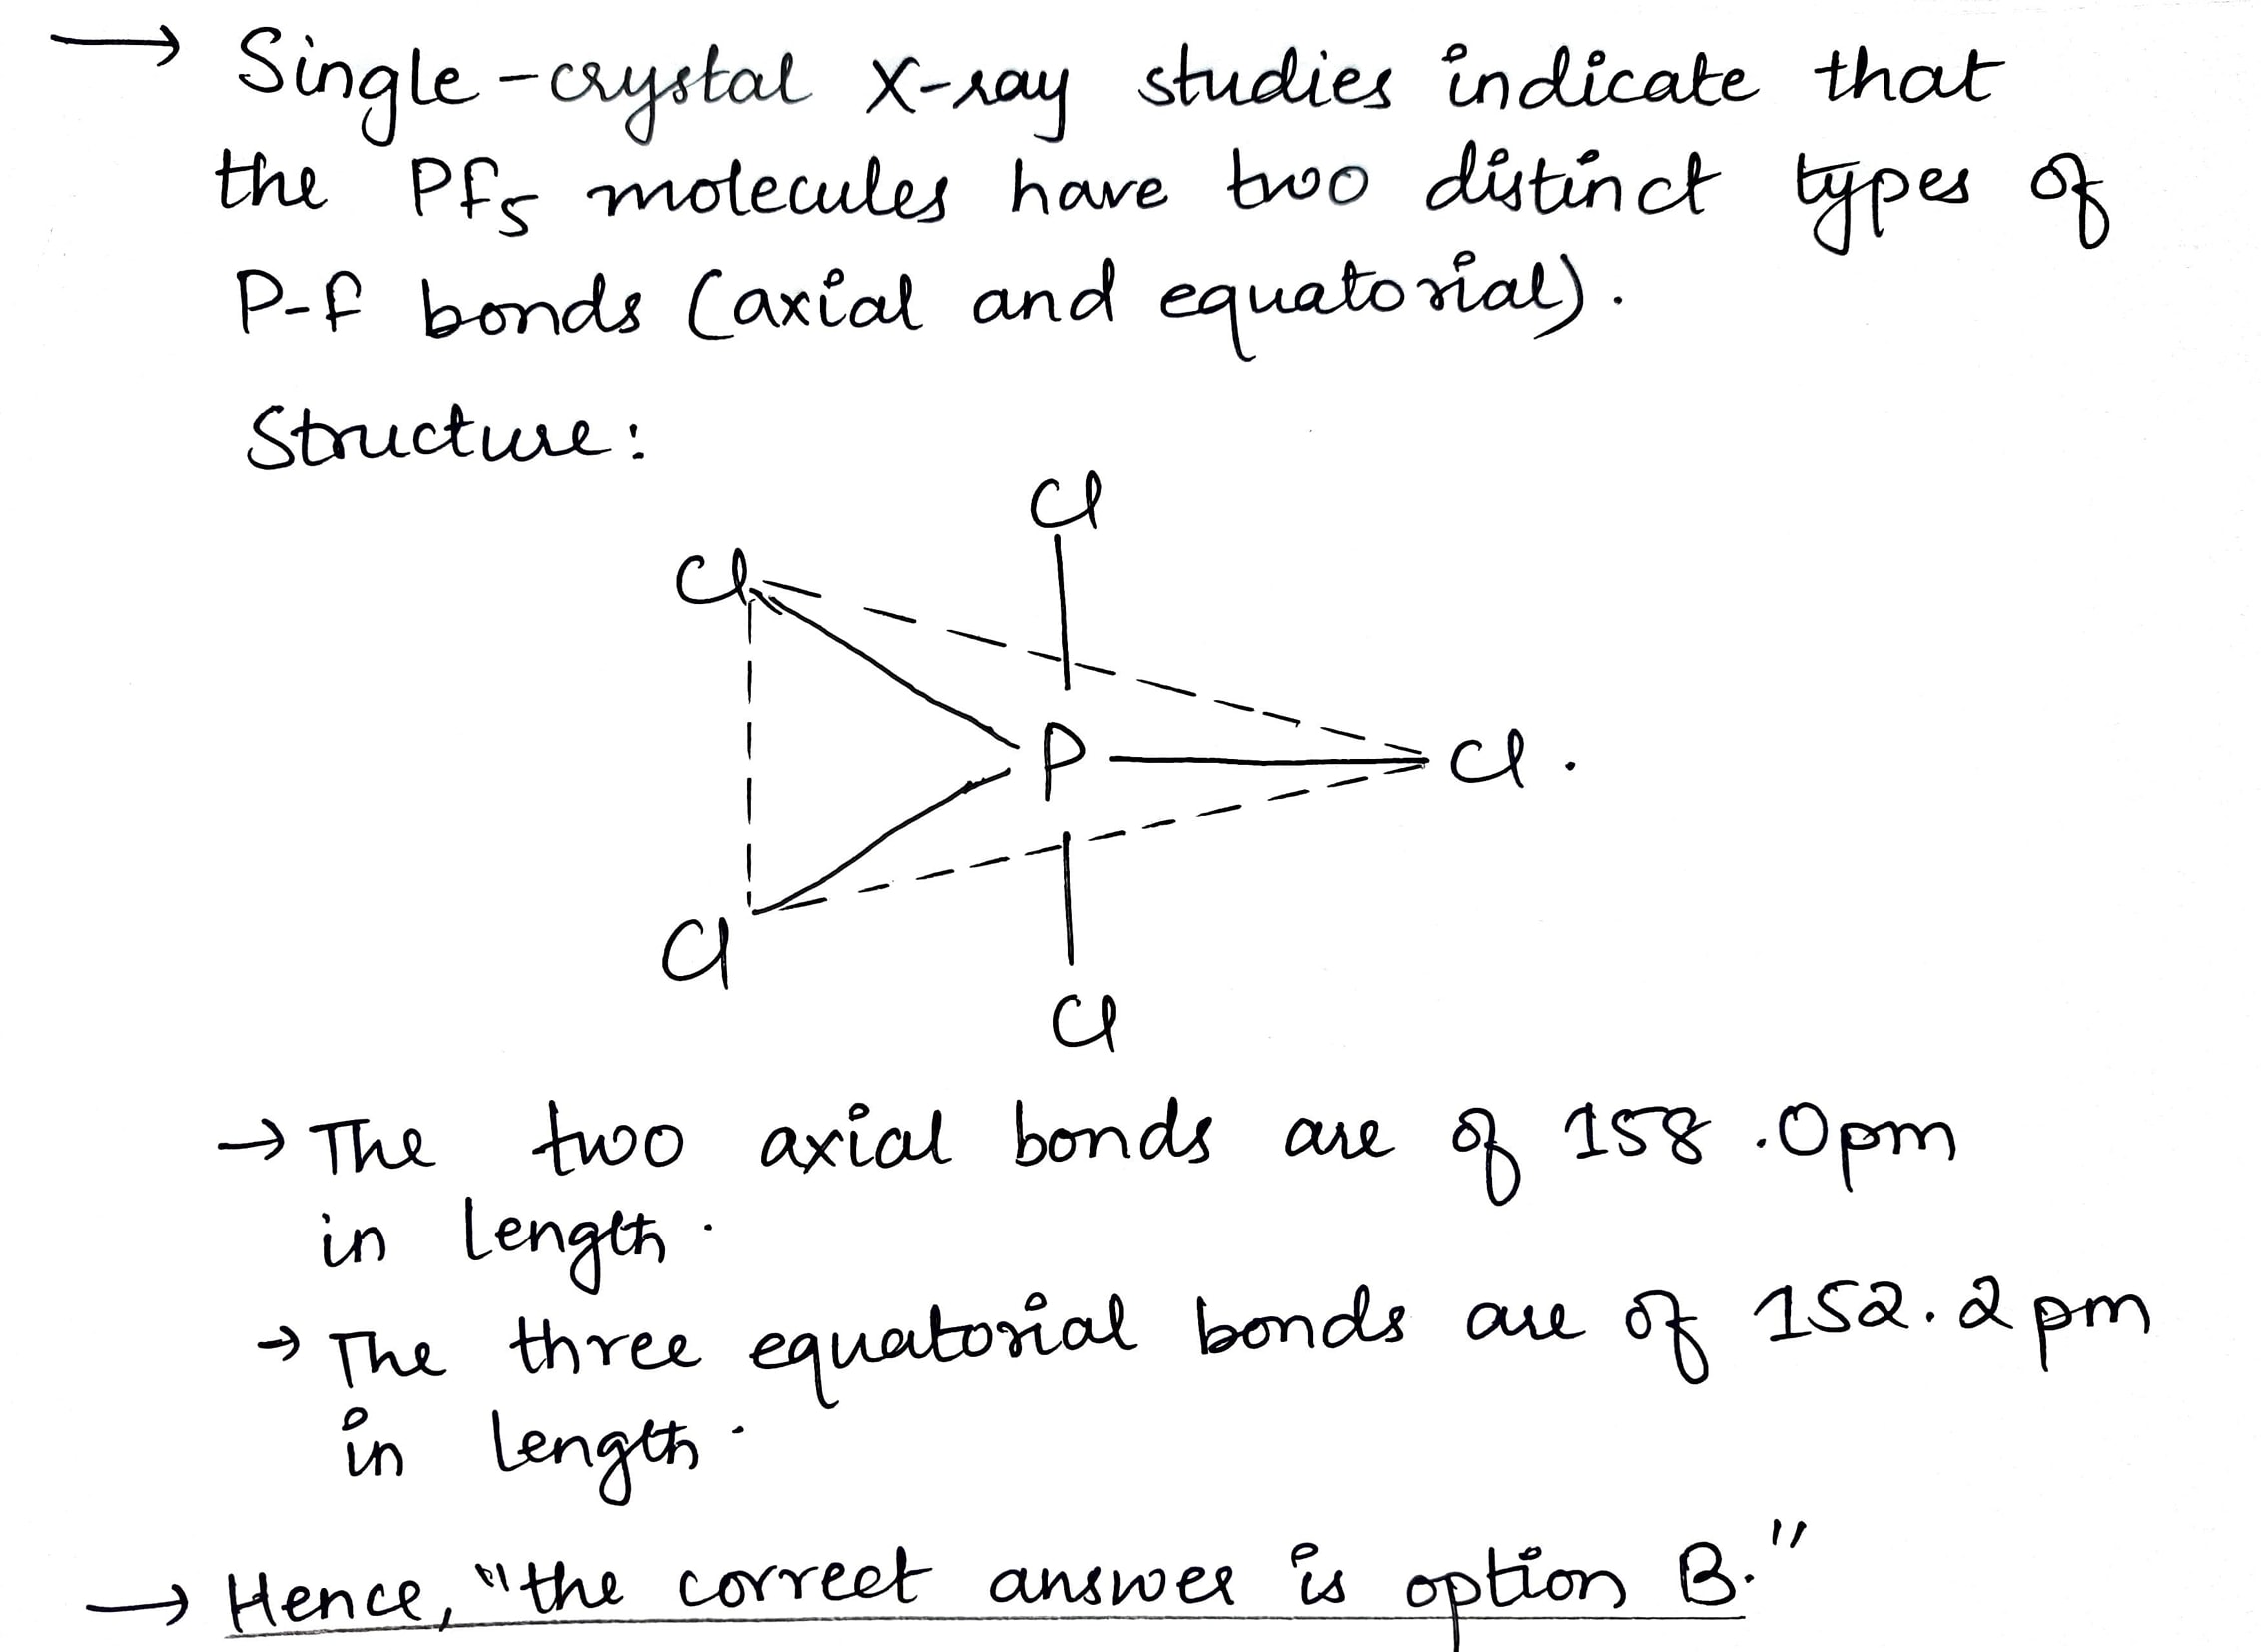 → Single-crystal X-ray studies indicate that
the PF5 molecules have two distinct types of
P-F bonds (axial and equatorial).
Structure:
Cl
Cl
P
Cl.
Cl
Cl
→ The two axial bonds are of 158.0pm
in length.
→ The three equatorial bonds are of 152.2pm
in length.
→ Hence, "the correct answer is option B."